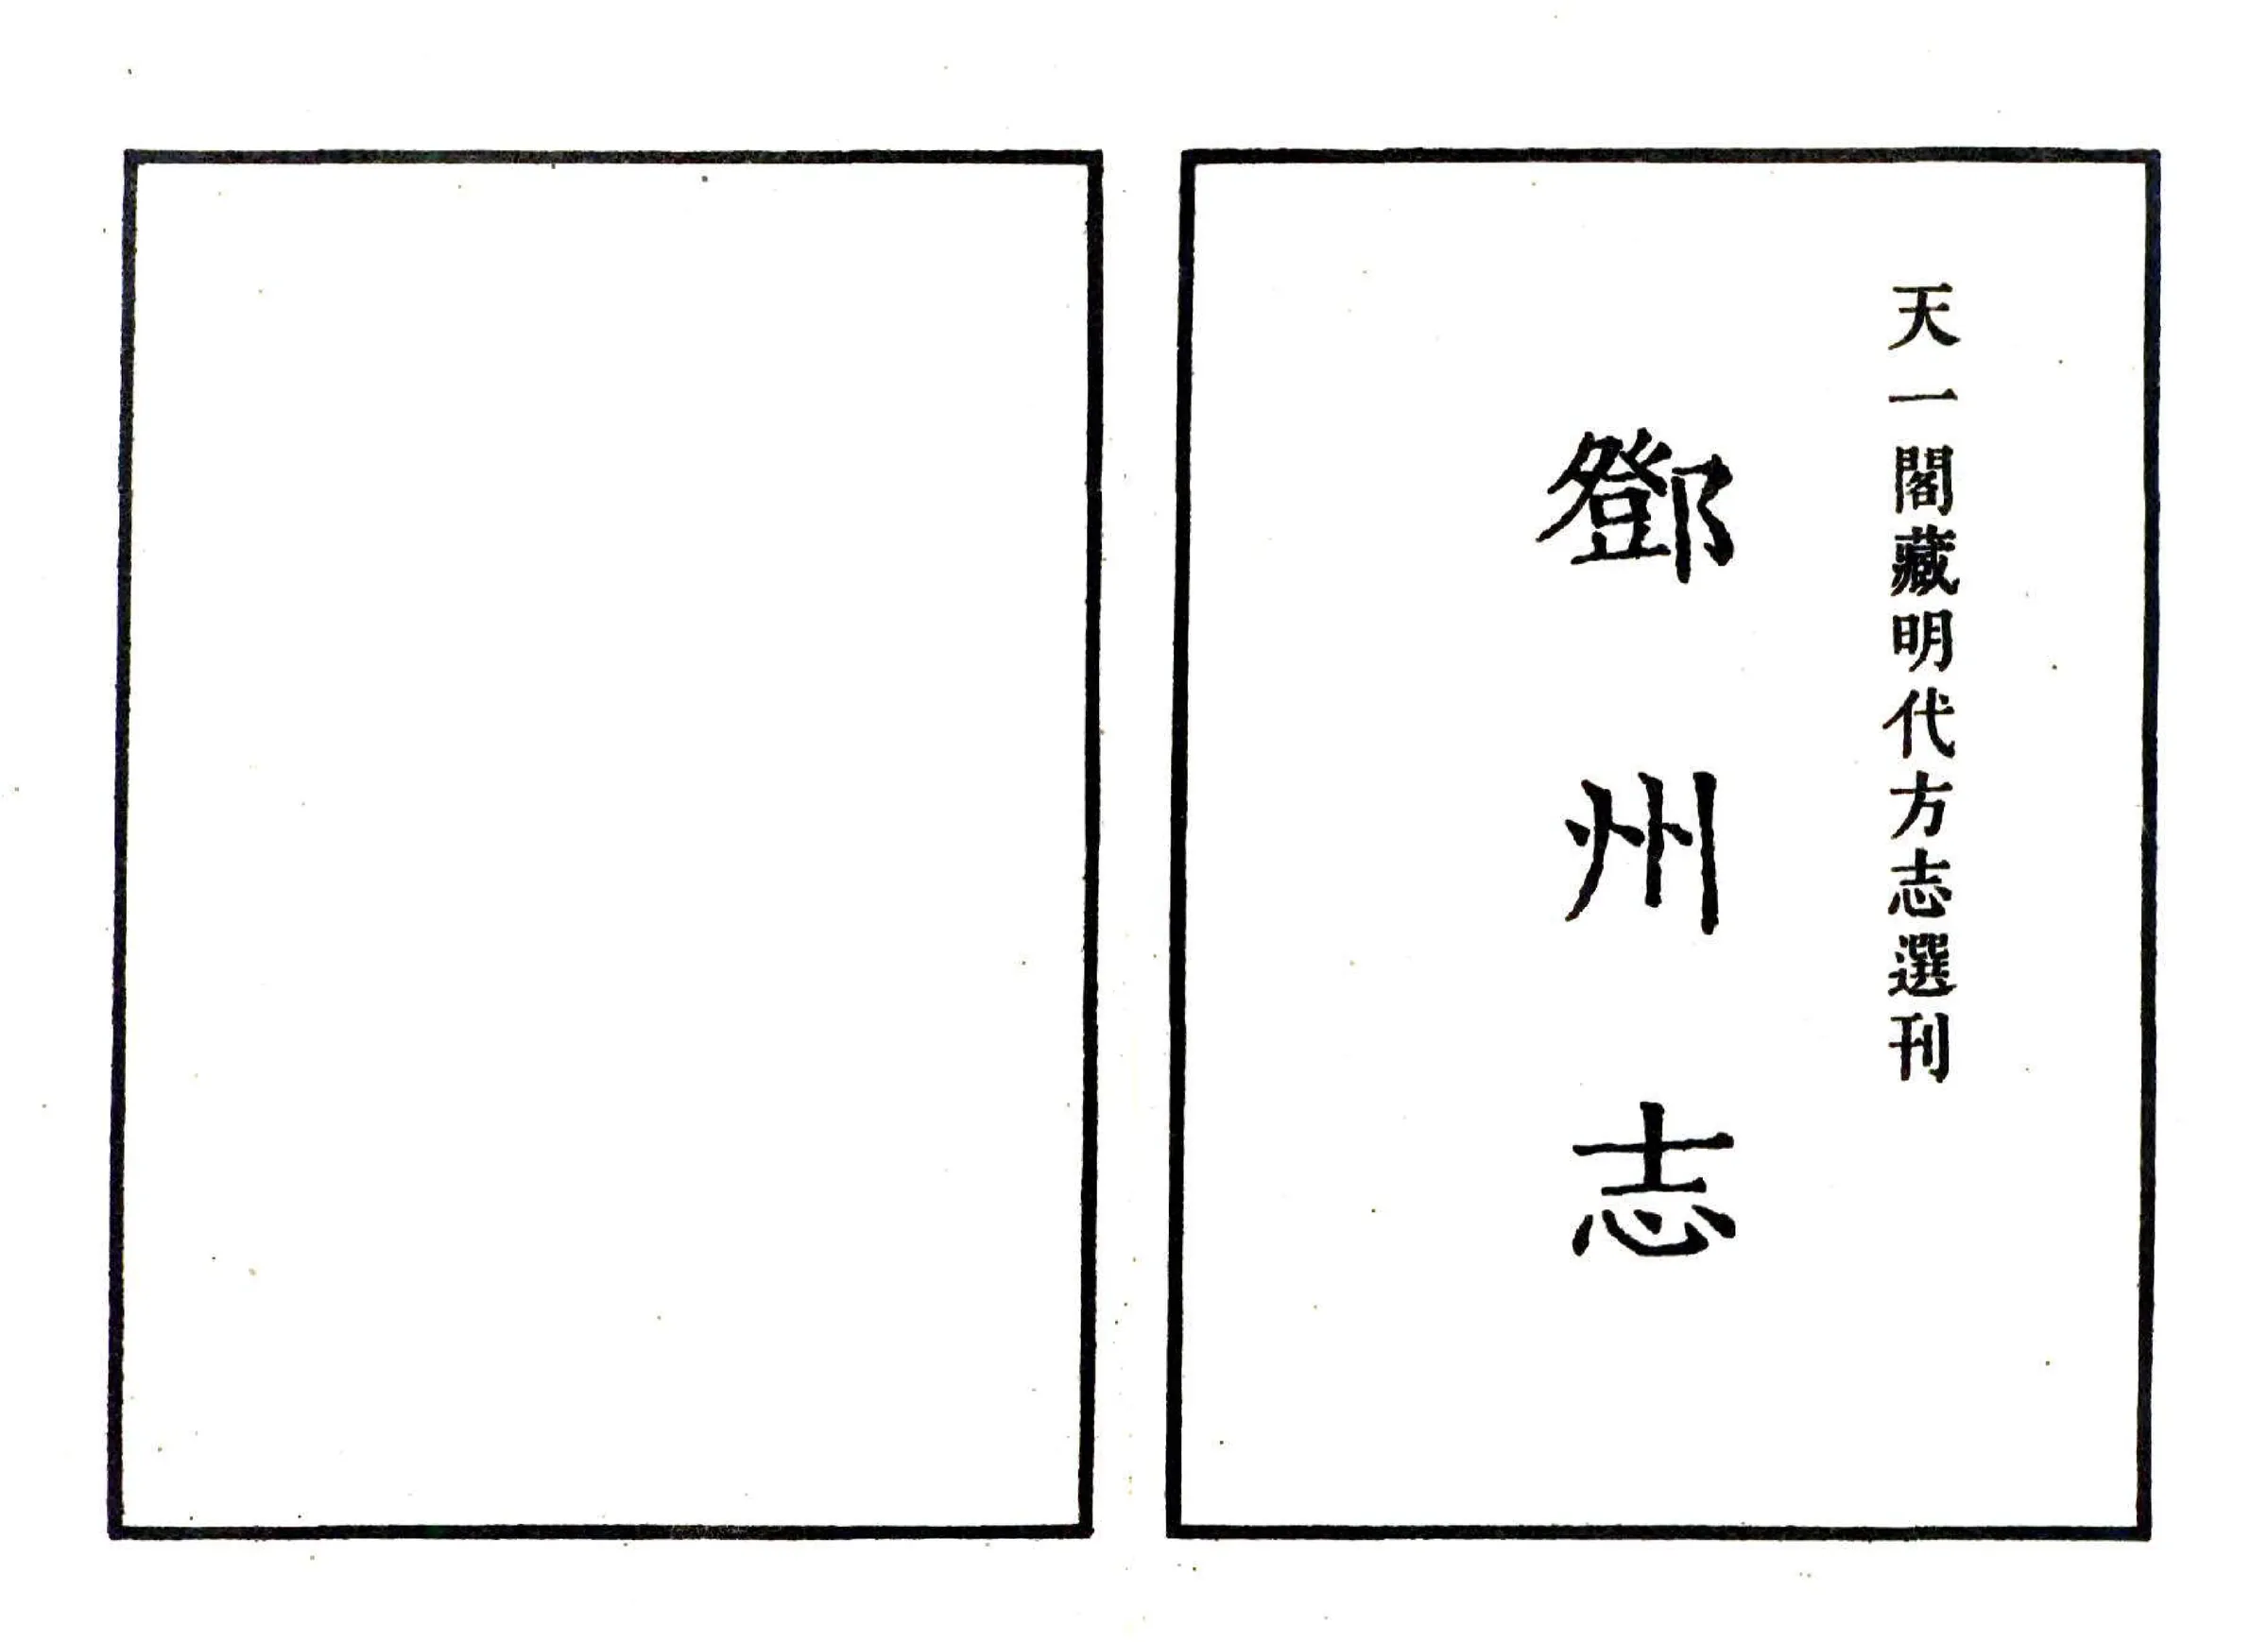 天一閣藏明代方志選刊
鄧州志